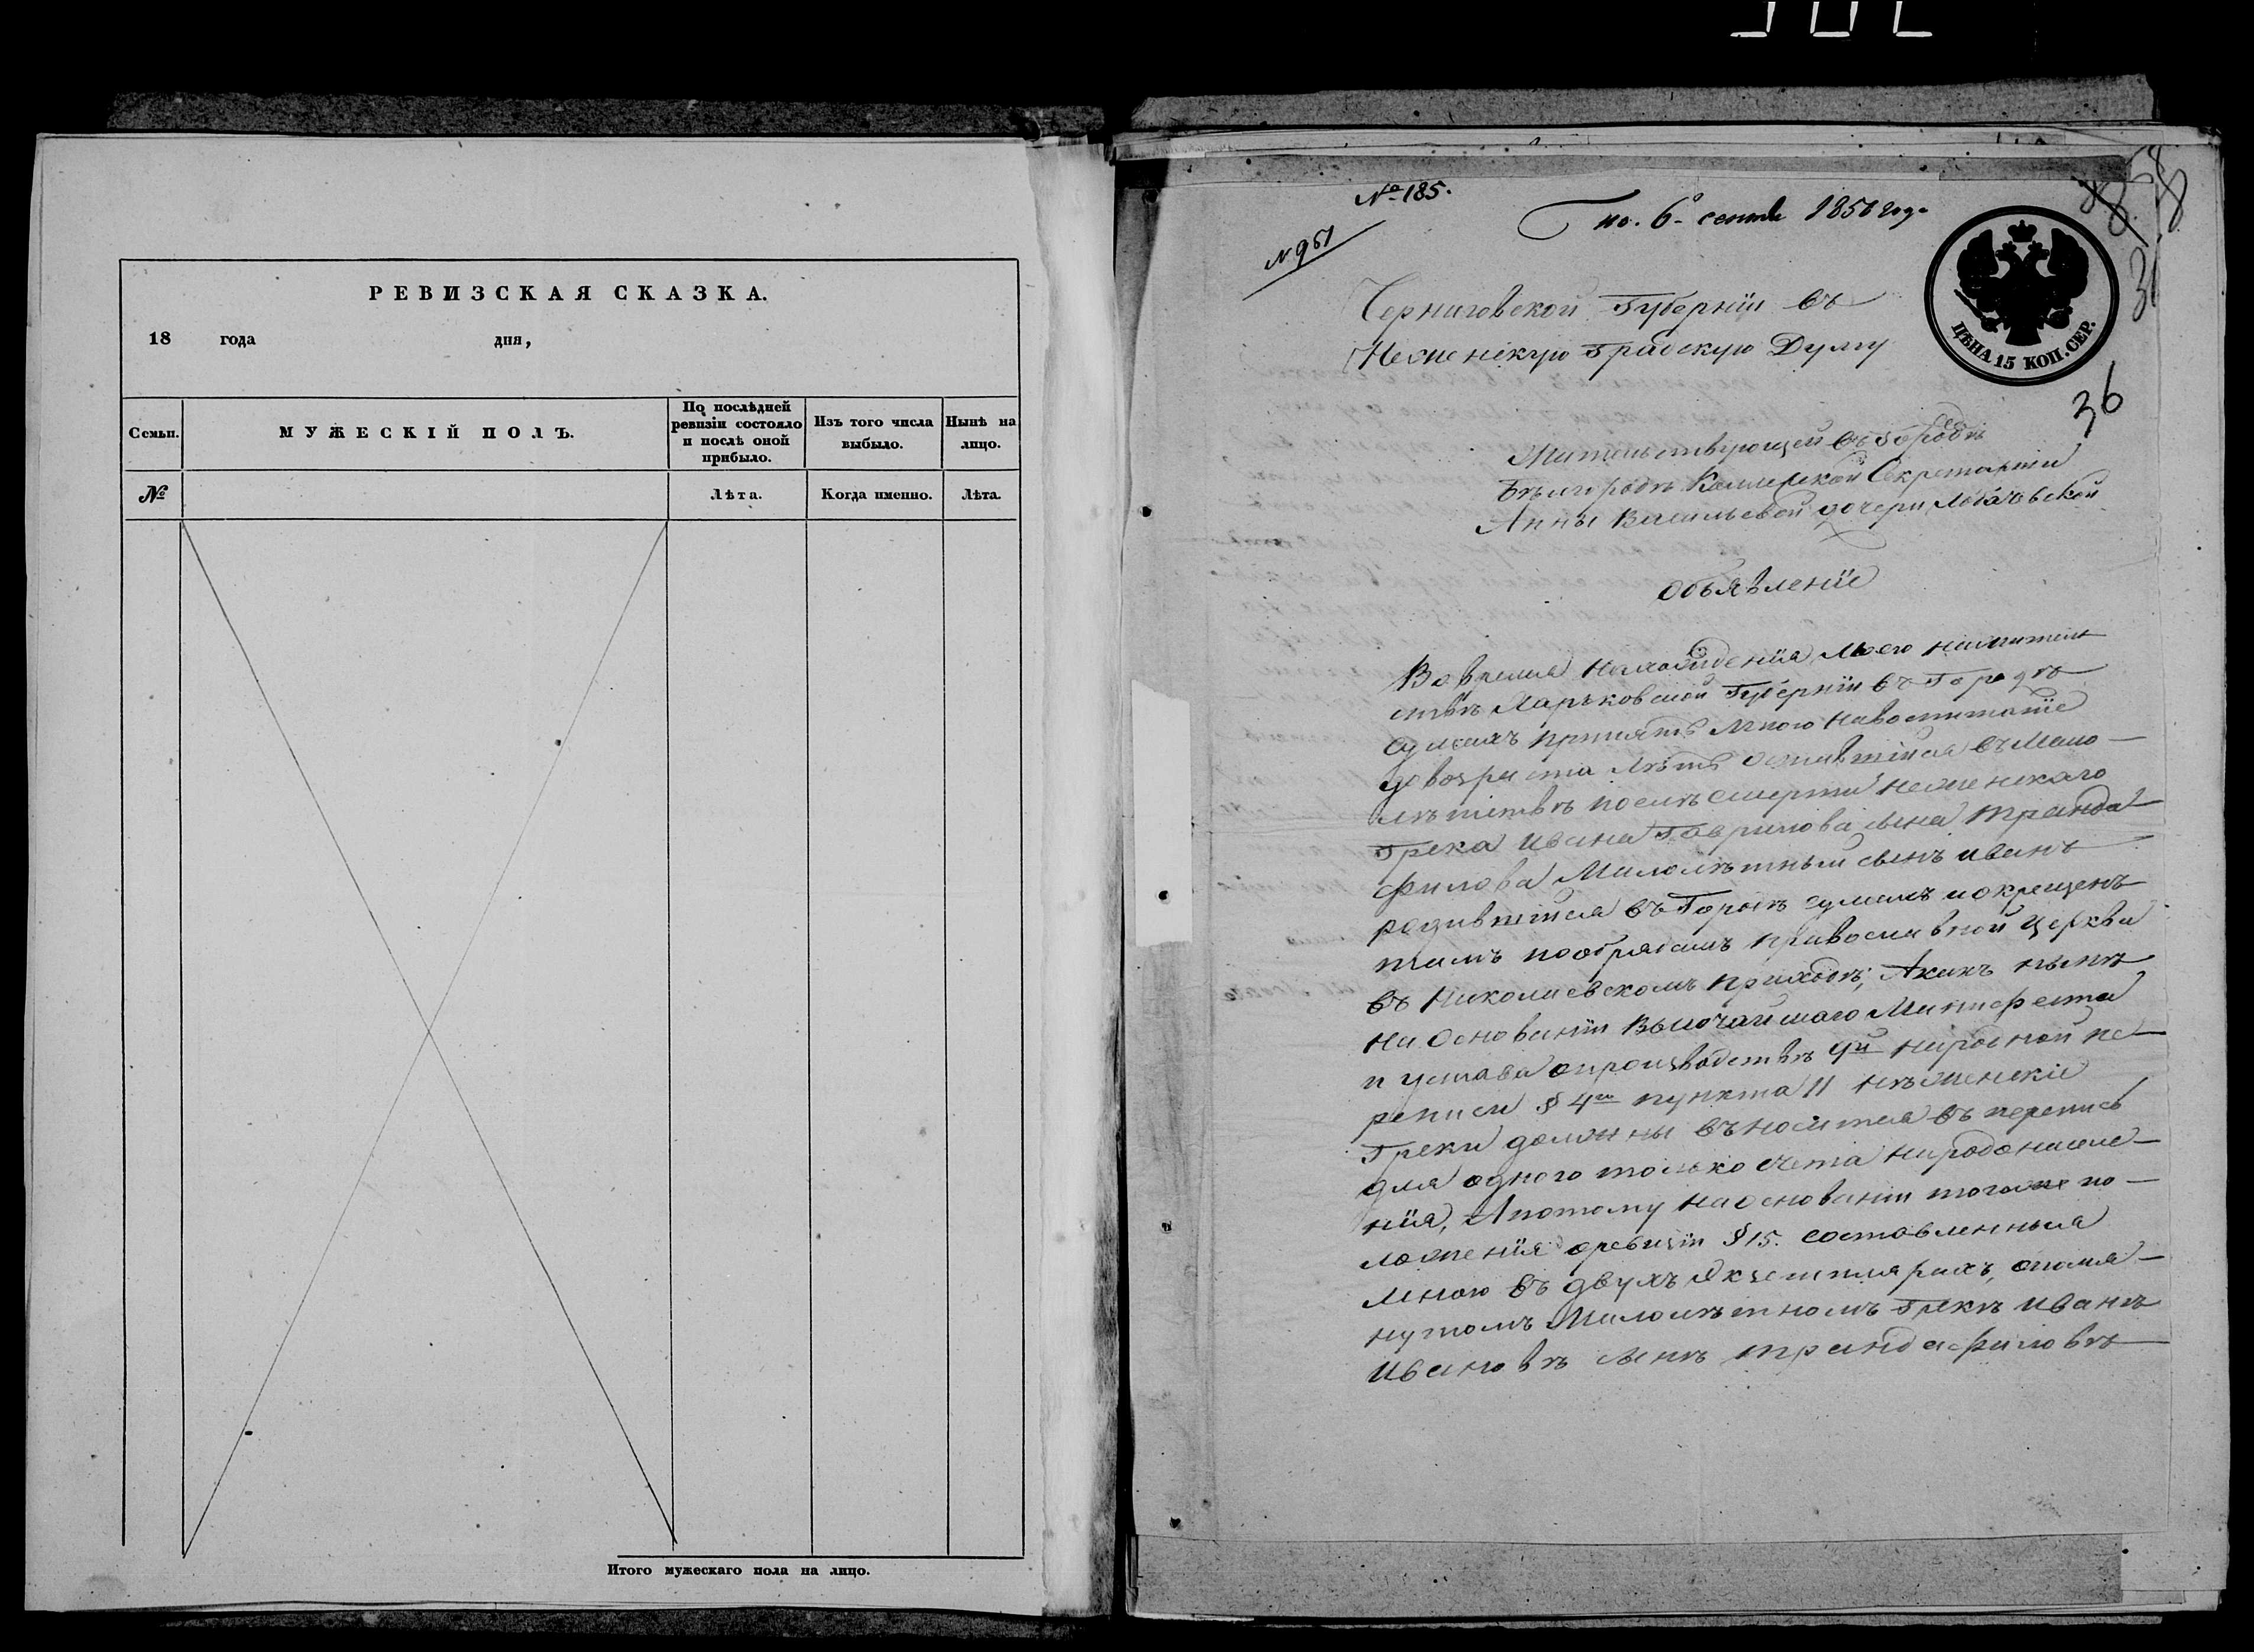 РЕВИЗСКАЯ СКАЗКА.
18 года дня,
Семьи.
МУЖЕСКІЙ ПОЛЪ.
По послѣдней
ревизіи состояло
и послѣ оной
прибыло.
Изъ того числа
выбыло.
Нынѣ на
лицо.
№
Лѣта.
Когда именно.
Лѣта.
Итого мужескаго пола на лицо.
№ 185.
по. 6о сентя 1850 года
№ 951
ЦѢНА 15 КОП. СЕР.
36
Черниговской Губерніи въ
Неженскую Градскую Думу
Жительствующей въ городѣ
Бѣлгородѣ Колежской Секретарши
Анны Васильевой дочери
Объявленіе
Во время нахожденія моего нажитель
ствѣ Харьковской Губерніи въ Городѣ
Сумахъ принятъ мною навоспитаніе
довозраста лѣтъ оставшійся въ мало—
лѣтствѣ послѣ смерти неженскаго
Грека Ивана Гаврилова сына Транда
филова Малолѣтный сынъ Иванъ
родившійся въ Городѣ Сумахъ и окрещенъ
тамъ пообрядамъ православной Церкви
въ Николаевскомъ приходѣ; Акакъ нынѣ
на Основаніи Высочайшаго Манифеста
и устава опроизводствѣ 9й народной пе—
реписи § 4го пункта 11 нѣженскіе
Греки должны въносится въ перепись
для одного только счета народонаселе—
нія, Апотому на основаніи тогоже по—
ложенія оревизіи § 15. составленныя
Мною въ двухъ Экземплярахъ, опомя—
нутомъ Малолѣтномъ Грекѣ Иванѣ
Ивановѣ сынѣ Трандафиловѣ